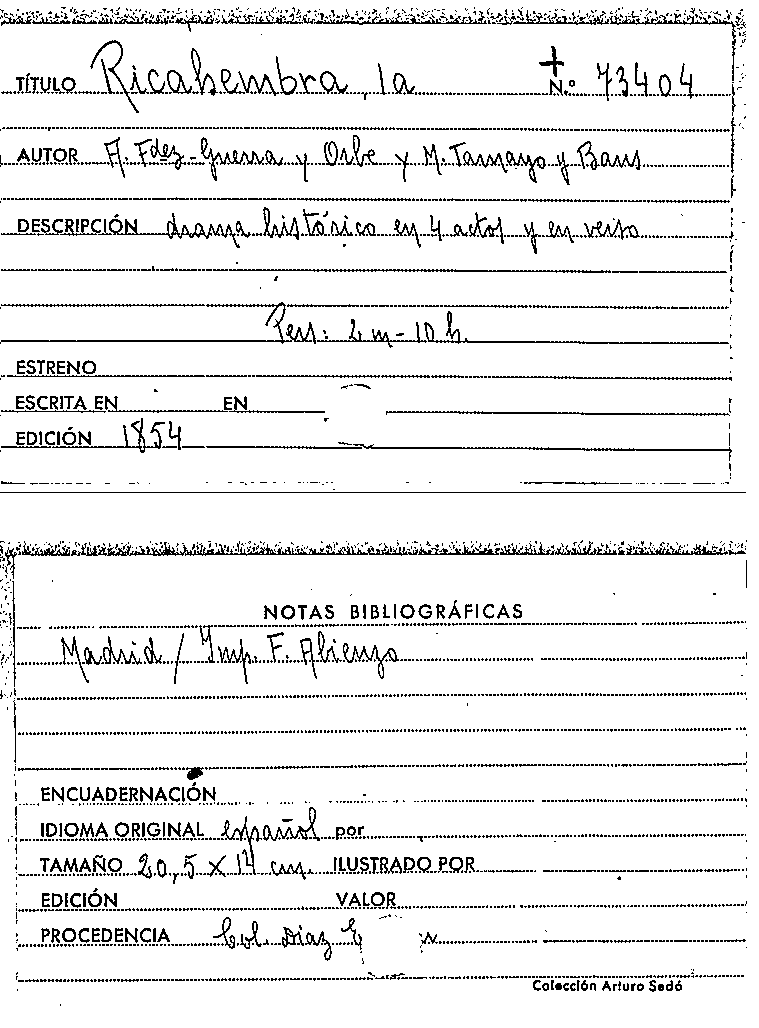 TÍTULO Ricahembra, la N.º 73404
AUTOR A. Fdez-Guerra y Orbe y M. Tamayo y Baus
DESCRIPCIÓN drama histórico en 4 actos y en verso
Pers: 2 m - 10 h.
ESTRENO
ESCRITA EN EN
EDICIÓN 1854
NOTAS BIBLIOGRÁFICAS
Madrid / Imp. F. Abienzo
ENCUADERNACIÓN
IDIOMA ORIGINAL español por
TAMAÑO 20,5 X 14 cm. ILUSTRADO POR
EDICIÓN VALOR
PROCEDENCIA Col. Díaz
Colección Arturo Sedó